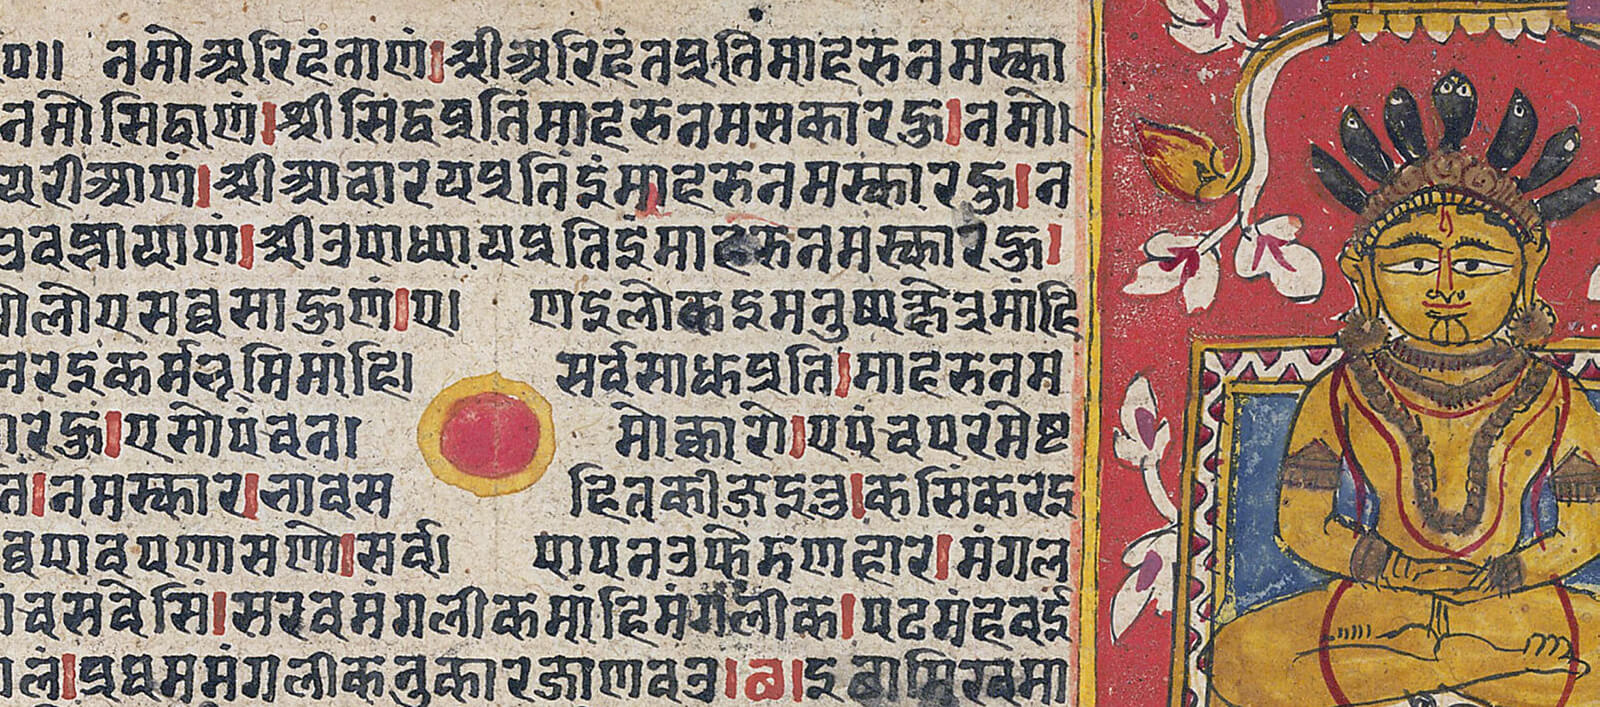 ए॥ नमो अरिहंताणं। श्री अरिहंतप्रतिमाहरुनमस्का
नमो सिद्धाणं। श्री सिद्धप्रतिंमाहरुनमसकारऊ। नमो।
यरीआणं। श्री आचारयप्रतिंइंमाहरुनमस्कारऊ। न
उवज्झायाणं। श्री उपाध्यायप्रतिइंमाहरुनमस्कारऊ।
लोएसव्वसाऊणं। ए। णइलोकइमनुष्यक्षेत्रमांहि
नरइकर्मभूमिमांहि। सर्वसाधप्रति। माहरुनम
रऊं। एसोपंचन। मोक्कारो। एपंचपरमेष्ट
त। नमस्कार। भावस हितकीजइउ। कसिंकरइ
व्वपावपणासणो। सर्व। पापनउफेडणहार। मंगल
चसवेसिं। सरवमंगलीकमांहिमंगलीक। पढमंहवई
लं। प्रथममंगलीकनुकारजाणवउ। छ। इ